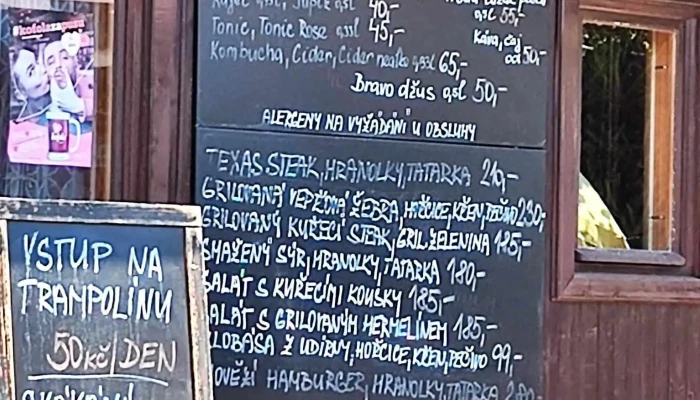 #kofolezapusu
Rajec 0,5l, Jupík 0,5l 40,-
0,5l 55,-
Tonic, Tonic Rose 0,33l 45,-
Káva, čaj
od 50,-
Kombucha, Cidar, Cidar nealko 0,33l 65,-
Bravo džus 0,5l 50,-
ALERGENY NA VYŽÁDÁNÍ U OBSLUHY
TEXAS STEAK, HRANOLKY, TATARKA 210,-
GRILOVANÁ VEPŘOVÁ ŽEBRA, HOŘČICE, KŘEN, PEČIVO 230,-
GRILOVANÝ KUŘECÍ STEAK, GRIL ZELENINA 185,-
SMAŽENÝ SÝR, HRANOLKY, TATARKA 180,-
SALÁT S KUŘECÍMI KOUSKY 185,-
SALÁT S GRILOVANÝM HERMELÍNEM 185,-
KLOBÁSA Z UDÍRNY, HOŘČICE, KŘEN, PEČIVO 99,-
HOVĚZÍ HAMBURGER, HRANOLKY, TATARKA
VSTUP NA
TRAMPOLÍNU
50 KČ/DEN